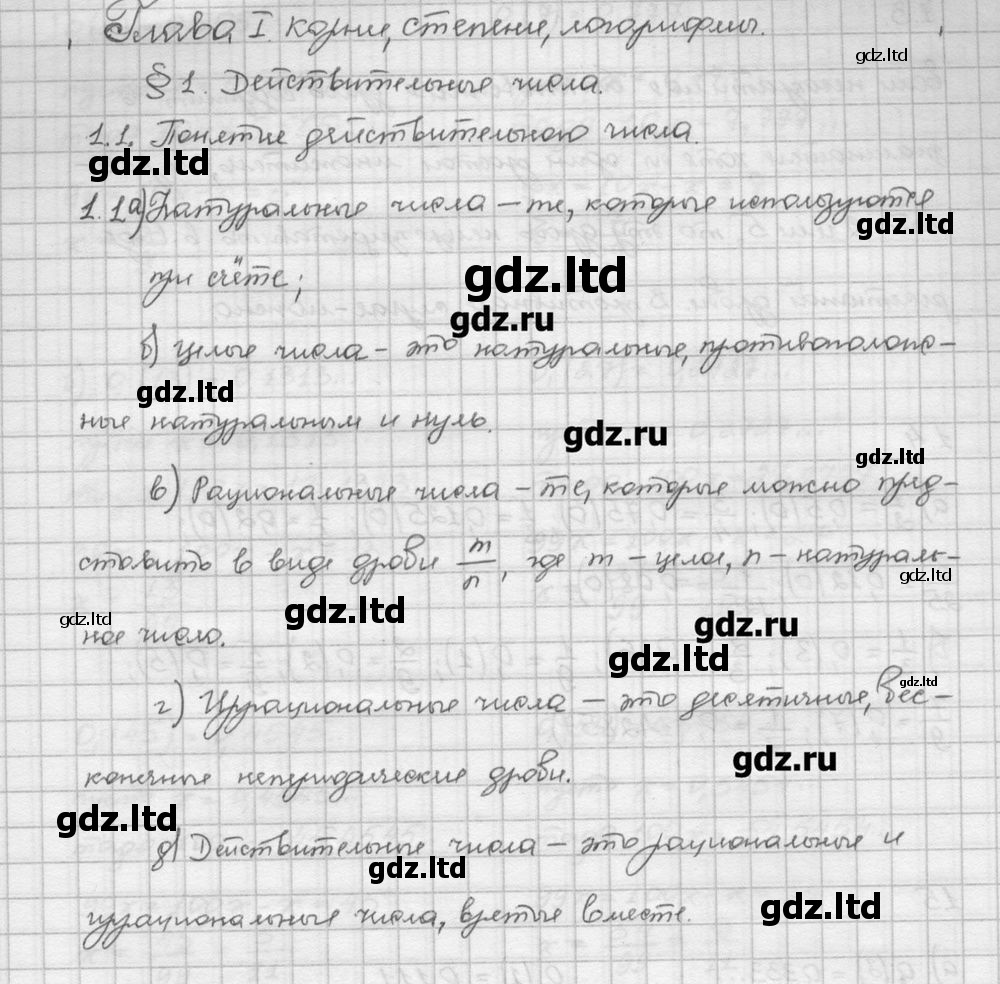 Глава I. Корни, степени, логарифмы.
gdz.ltd
§ 1. Действительные числа.
1.1. Понятие действительного числа.
gdz.ltd
1.1 а) Натуральные числа – те, которые используются
gdz.ltd
при счёте;
gdz.ltd
gdz.ru
б) целые числа – это натуральные, противополож-
gdz.ltd
ные натуральным и нуль.
gdz.ru
gdz.ltd
в) Рациональные числа – те, которые можно пред-
ставить в виде дроби m/n, где m – целое, n – натураль-
gdz.ltd
gdz.ltd
gdz.ltd
ное число.
gdz.ru
gdz.ltd
gdz.ltd
г) Иррациональные числа – это десятичные, бес-
gdz.ru
конечные непериодические дроби.
gdz.ltd
д) Действительные числа – это рациональные и
gdz.ltd
gdz.ltd
иррациональные числа, взятые вместе.